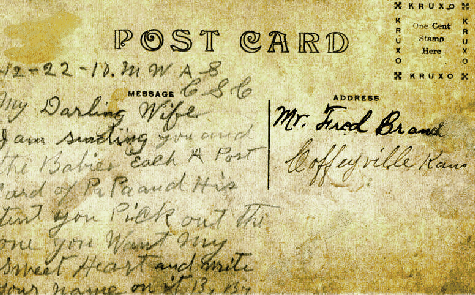 KRUXO
POST CARD
KRUXO
One Cent
Stamp
Here
KRUXO
KRUXO
12-22-10. M W A S
C S C
MESSAGE
My Darling Wife
I am sending you and
the Babies Each A Post
Card of PaPa and His
tent you Pick out the
one you Want My
Sweet Heart and write
your name on it By By
ADDRESS
Mr. Fred Brand
Coffeyville Kans